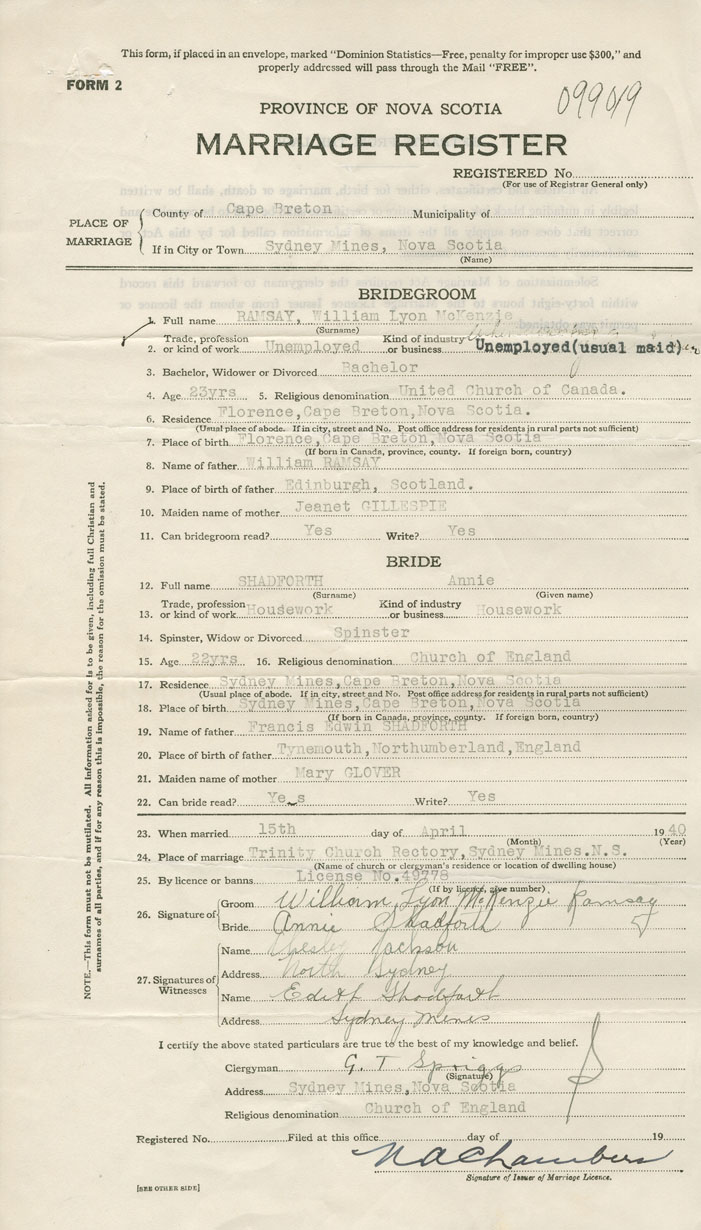 This form, if placed in an envelope, marked "Dominion Statistics—Free, penalty for improper use $300," and
properly addressed will pass through the Mail "FREE".
FORM 2
099019
PROVINCE OF NOVA SCOTIA
MARRIAGE REGISTER
REGISTERED No.
(For use of Registrar General only)
PLACE OF MARRIAGE
County of Cape Breton Municipality of
If in City or Town Sydney Mines, Nova Scotia
(Name)
BRIDEGROOM
1. Full name RAMSAY, William Lyon McKenzie
(Surname)
2. Trade, profession or kind of work Unemployed Kind of industry or business Unemployed(usual maid)
3. Bachelor, Widower or Divorced Bachelor
4. Age 23yrs 5. Religious denomination United Church of Canada.
6. Residence Florence,Cape Breton,Nova Scotia.
(Usual place of abode. If in city, street and No. Post office address for residents in rural parts not sufficient)
7. Place of birth Florence,Cape Breton,Nova Scotia
(If born in Canada, province, county. If foreign born, country)
8. Name of father William RAMSAY
9. Place of birth of father Edinburgh, Scotland.
10. Maiden name of mother Jeanet GILLESPIE
11. Can bridegroom read? Yes Write? Yes
BRIDE
12. Full name SHADFORTH Annie
(Surname) (Given name)
13. Trade, profession or kind of work Housework Kind of industry or business Housework
14. Spinster, Widow or Divorced Spinster
15. Age 22yrs 16. Religious denomination Church of England
17. Residence Sydney Mines,Cape Breton,Nova Scotia
(Usual place of abode. If in city, street and No. Post office address for residents in rural parts not sufficient)
18. Place of birth Sydney Mines,Cape Breton,Nova Scotia
(If born in Canada, province, county. If foreign born, country)
19. Name of father Francis Edwin SHADFORTH
20. Place of birth of father Tynemouth,Northumberland,England
21. Maiden name of mother Mary GLOVER
22. Can bride read? Yes Write? Yes
23. When married 15th day of April 1940
(Month) (Year)
24. Place of marriage Trinity Church Rectory,Sydney Mines.N.S.
(Name of church or clergyman's residence or location of dwelling house)
25. By licence or banns License No.49778
(If by licence, give number)
26. Signature of
Groom William Lyon McKenzie Ramsay
Bride Annie Shadforth
27. Signatures of Witnesses
Name Wesley Jackson
Address North Sydney
Name Edith Shadforth
Address Sydney Mines
I certify the above stated particulars are true to the best of my knowledge and belief.
Clergyman G. T. Spriggs
(Signature)
Address Sydney Mines,Nova Scotia
Religious denomination Church of England
Registered No. Filed at this office day of 19
N A Chambers
Signature of Issuer of Marriage Licence.
[SEE OTHER SIDE]
NOTE.—This form must not be mutilated. All information asked for is to be given, including full Christian and
surnames of all parties, and if for any reason this is impossible, the reason for the omission must be stated.